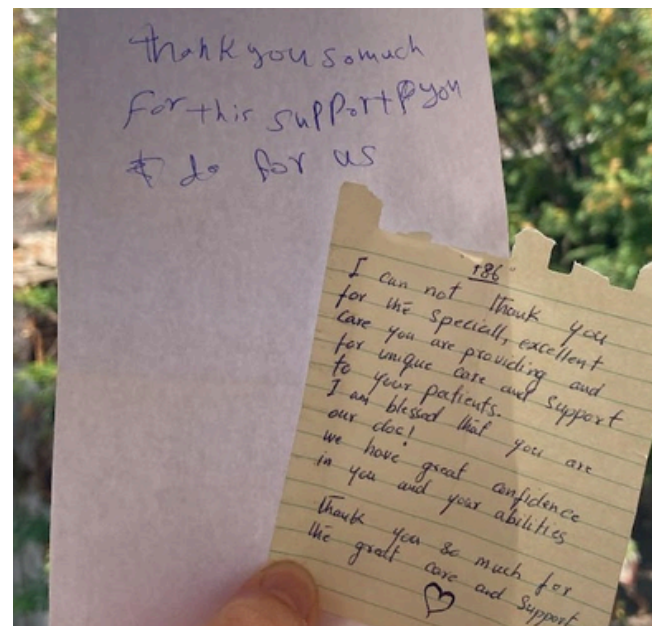 thank you so much
for this support you
do for us
"86"
I can not thank you
for the Speciall, excellent
care you are providing and
for unique care and support
to your patients.
I am blessed that you are
our doc!
we have great confidence
in you and your abilities
Thank you so much for
the great care and support